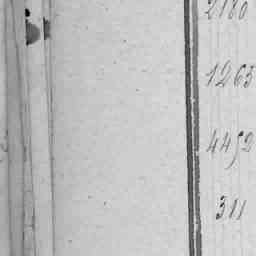 2180
1263
4452
311